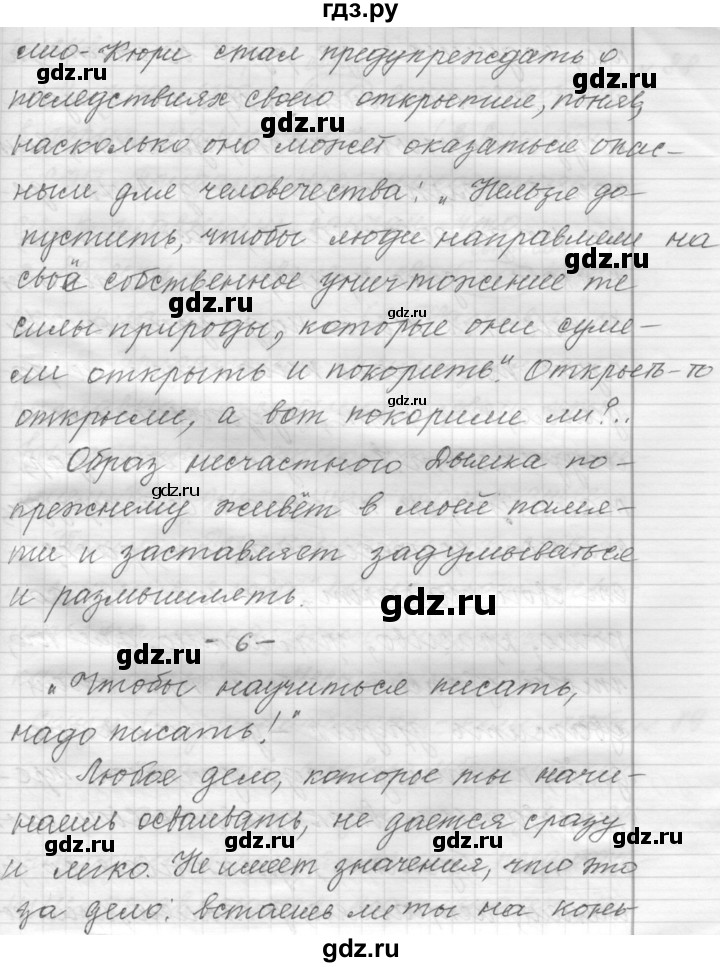 гдз.ру
лио-Кюри стал предупреждать о
последствиях своего открытия, поняв,
gdz.ru
насколько оно может оказаться опас-
ным для человечества: „Нельзя до-
пустить, чтобы люди направляли на
gdz.ru
своё собственное уничтожение те
gdz.ru
силы природы, которые они суме-
gdz.ru
ли открыть и покорить". Открыть-то
gdz.ru
открыли, а вот покорили ли?..
Образ несчастного Дымка по-
gdz.ru
прежнему живёт в моей памя-
ти и заставляет задумываться
и размышлять.
gdz.ru
- 6 -
gdz.ru
„Чтобы научиться писать,
надо писать!"
Любое дело, которое ты начи-
наешь осваивать, не дается сразу
gdz.ru gdz.ru gdz.ru gdz.ru
и легко. Не имеет значения, что это
за дело: встаешь ли ты на конь-
gdz.ru